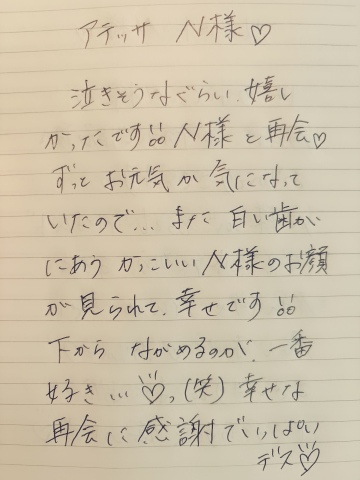 アテッサ N様♡
泣きそうなぐらい、嬉し
かったです!! N様と再会♡
ずっと お元気か 気になって
いたので... また 白い歯が
にあう かっこいい N様のお顔
が見られて、幸せです!!
下から ながめるのが、一番
好き...♡っ(笑) 幸せな
再会に感謝でいっぱい
デス♡